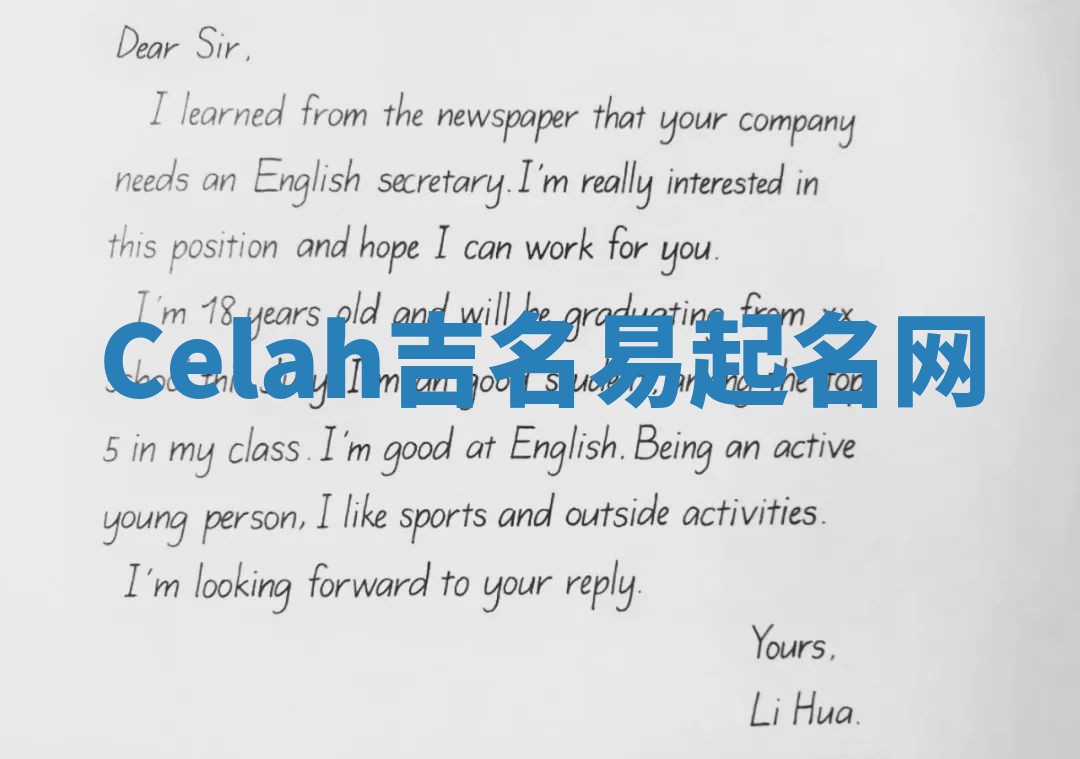 Dear Sir,
I learned from the newspaper that your company
needs an English secretary. I'm really interested in
this position and hope I can work for you.
I'm 18 years old and will be graduating from xx
Celah吉名易起名网
school this July. I'm an good student, among the top
5 in my class. I'm good at English. Being an active
young person, I like sports and outside activities.
I'm looking forward to your reply.
Yours,
Li Hua.